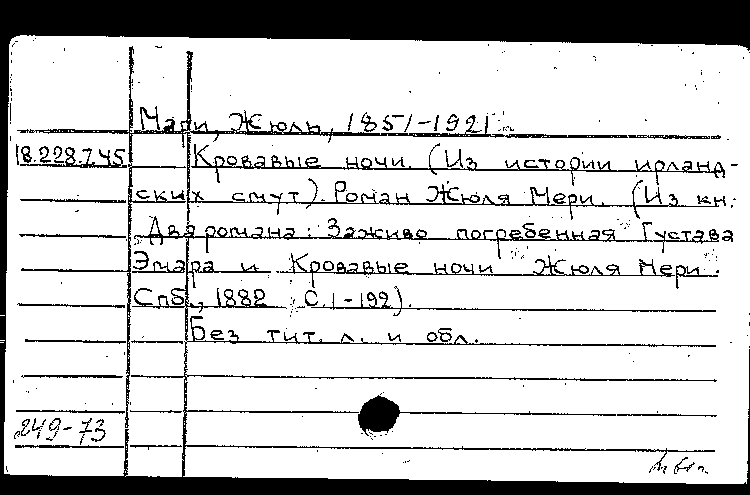 Мари, Жюль, 1851-1921
18.228.745 Кровавые ночи. (Из истории ирланд-
ских смут). Роман Жюля Мери. (Из кн:
"Два романа: Заживо погребенная Густава
Эмара и Кровавые ночи Жюля Мери.
Спб., 1882 С. 1-192).
Без тит. л. и обл.
249-73